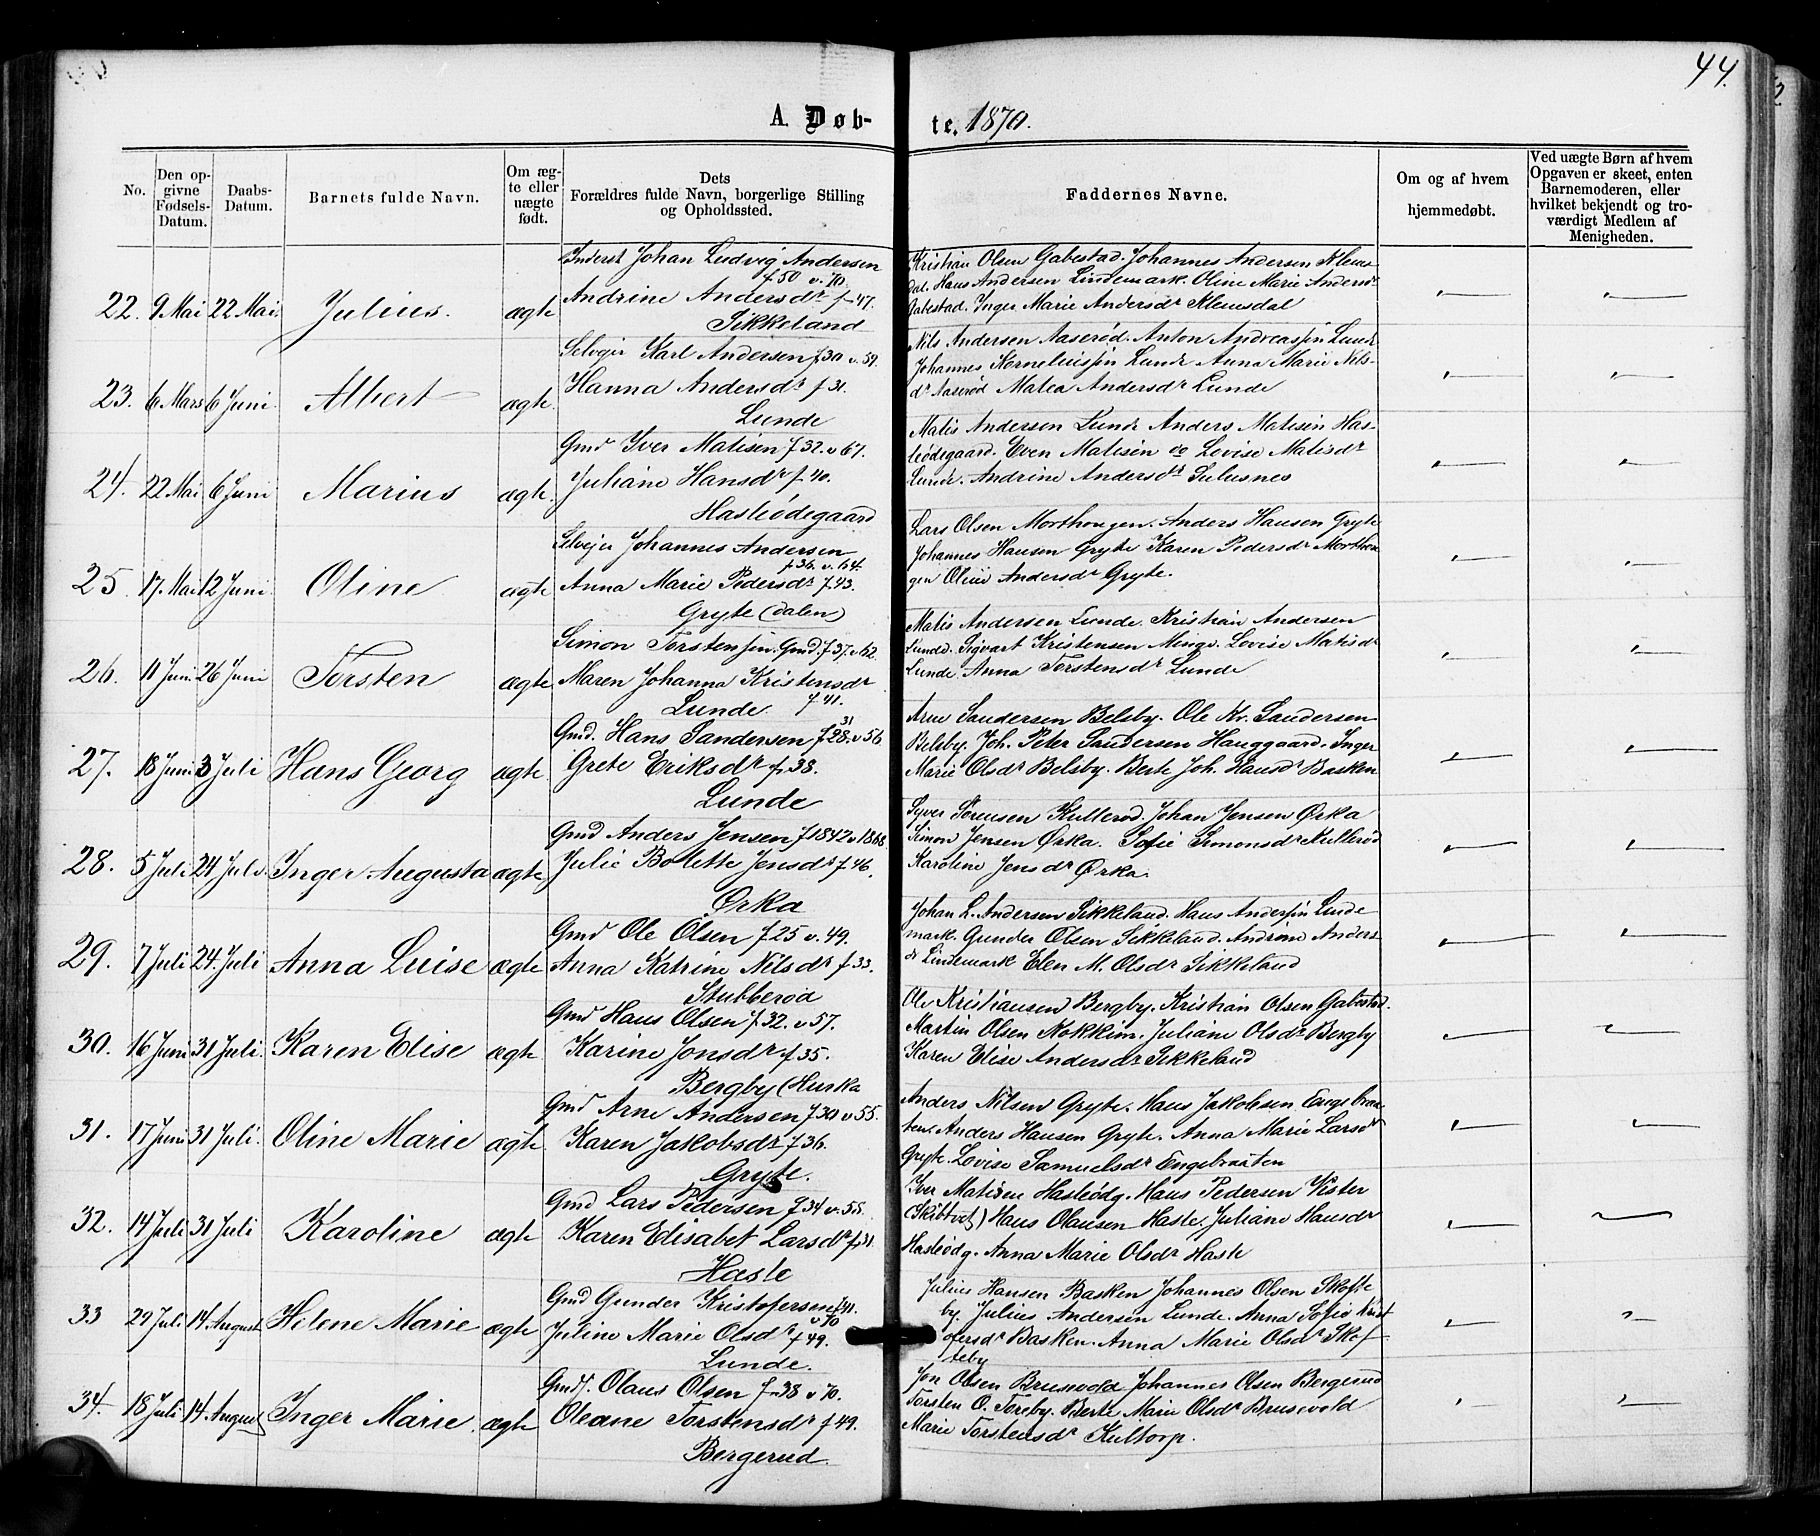 44.
A. Døb-
te. 1870.
No.
Den op-
givne
Fødsels-
Datum.
Daabs-
Datum.
Barnets fulde Navn.
Om æg-
te eller
uægte
født.
Dets
Forældres fulde Navn, borgerlige Stilling
og Opholdssted.
Faddernes Navne.
Om og af hvem
hjemmedøbt.
Ved uægte Børn af hvem
Opgaven er skeet, enten
Barnemoderen, eller
hvilket bekjendt og tro-
værdigt Medlem af
Menigheden.
22. 9 Mai 22 Mai. Julius. ægte
Inderst Johan Ludvig Andersen
f50 v. 70.
Andrine Andersdr f 47.
Sikkeland
Kristian Olsen Gabestad. Johannes Andersen Klems-
dal. Hans Andersen Lindemark. Oline Marie Andersdr
Gabestad. Inger Marie Andersdr Klemsdal
23. 6 Mars 6 Juni Albert ægte.
Selvejer Karl Andersen f30 v. 59.
Hanna Andersdr f 31.
Lunde
Nils Andersen Aaserød. Anton Andreassen Lunde
Johannes Korneliussen Lunde Anna Marie Nils-
dr Aaserød Matea Andersdr Lunde
24. 22 Mai 6 Juni Marius ægte.
Gmd Yver Matisen f 32. v 67.
Juliane Hansdr f 40.
Hasleødegaard
Matis Andersen Lunde Anders Matisen Has-
leødegaard. Even Matisen og Lovise Matisdr
Lunde. Andrine Andersdr
25. 17. Mai 12 Juni Oline ægte
Selvejer Johannes Andersen
f36. v. 64.
Anna Marie Pedersdr f43.
Gryte (dalen)
Lars Olsen Morthougen. Anders Hansen Gryte
Johannes Hansen Gryte Karen Pedersdr Morthou
gen Oline Andersdr Gryte.
26. 11 Juni 26 Juni Torsten ægte
Simon Torstensen. Gmd. f 37. v 62.
Maren Johanna Kristensdr
Lunde. f 41.
Matis Andersen Lunde. Kristian Andersen
Lunde. Sigvart Kristensen Minge. Lovise Matisdr
Lunde. Anna Torstensdr Lunde
27. 18 Juni 3 Juli Hans Georg ægte
31
Gmd. Hans Sandersen f 28. v 56.
Grete Eriksdr f. 38.
Lunde
Arne Sandersen Belsby. Ole Kr. Sandersen
Belsby. Joh. Peter Sandersen Hauggaard. Inger
Marie Olsdr Belsby. Berte Joh. Hansdr Basken
28. 5 Juli 24 Juli. Inger Augusta ægte
Gmd Anders Jensen f1842 v 1868.
Julie Bolette Jensdr f. 46.
Ørka
Syver Sørensen Kullerød. Johan Jensen Ørka
Simon Jensen Ørka. Sofie Simonsdr Kullerød
Karoline Jensdr Ørka.
29. 7 Juli 24. Juli Anna Luise ægte
Gmd Ole Olsen f25 v. 49.
Anna Katrine Nilsdr f. 33.
Stubberød
Johan L. Andersen Sikkeland. Hans Andersen Linde
mark. Gunder Olsen Sikkeland. Andrine Anders-
dr Lindemark Elen M. Olsdr Sikkeland
30. 16 Juni 31 Juli. Karen Elise ægte
Gmd Hans Olsen f 32. v 57.
Karine Jonsdr f. 35.
Bergby (Hurka
Ole Kristiansen Bergby. Kristian Olsen Gabestad.
Martin Olsen Nokkim. Juliane Olsdr Bergby
Karen Elise Andersdr Sikkeland
31. 17 Juni 31 Juli. Oline Marie ægte
Gmd Arne Andersen f30 v 55.
Karen Jakobsdr f36.
Gryte.
Anders Nilsen Gryte. Hans Jakobsen Engebraa-
ten. Anders Hansen Gryte. Anna Marie Larsdr
Gryte. Lovise Samuelsdr Engebraaten
32. 14 Juli 31 Juli Karoline ægte
Gmd Lars Pedersen f 34 v. 55.
Karen Elisabet Larsdr f. 31.
Hasle
Yver Matisen Hasleødg. Hans Pedersen Vister
(Skibtvet) Hans Olausen Hasle. Juliane Hansdr
Hasleødg. Anna Marie Olsdr Hasle
33 29 Juli 14 August Helene Marie ægte
Gmd Gunder Kristofersen f41.
v. 70
Juline Marie Olsdr f 49.
Lunde.
Julius Hansen Basken Johannes Olsen Skofte
by. Julius Andersen Lunde. Anna Sofie Krist
ofersdr Basken. Anna Marie Olsdr Skof-
teby
34. 18 Juli. 14 August Inger Marie. ægte
Gmdf. Olaus Olsen f. 38 v 70.
Oleane Torstensdr f 49.
Bergerud.
Jon Olsen Brusevold Johannes Olsen Bergerud
Torsten O. Foreby. Berte Marie Olsdr Brusevold
Marie Torstensdr Kultorp.